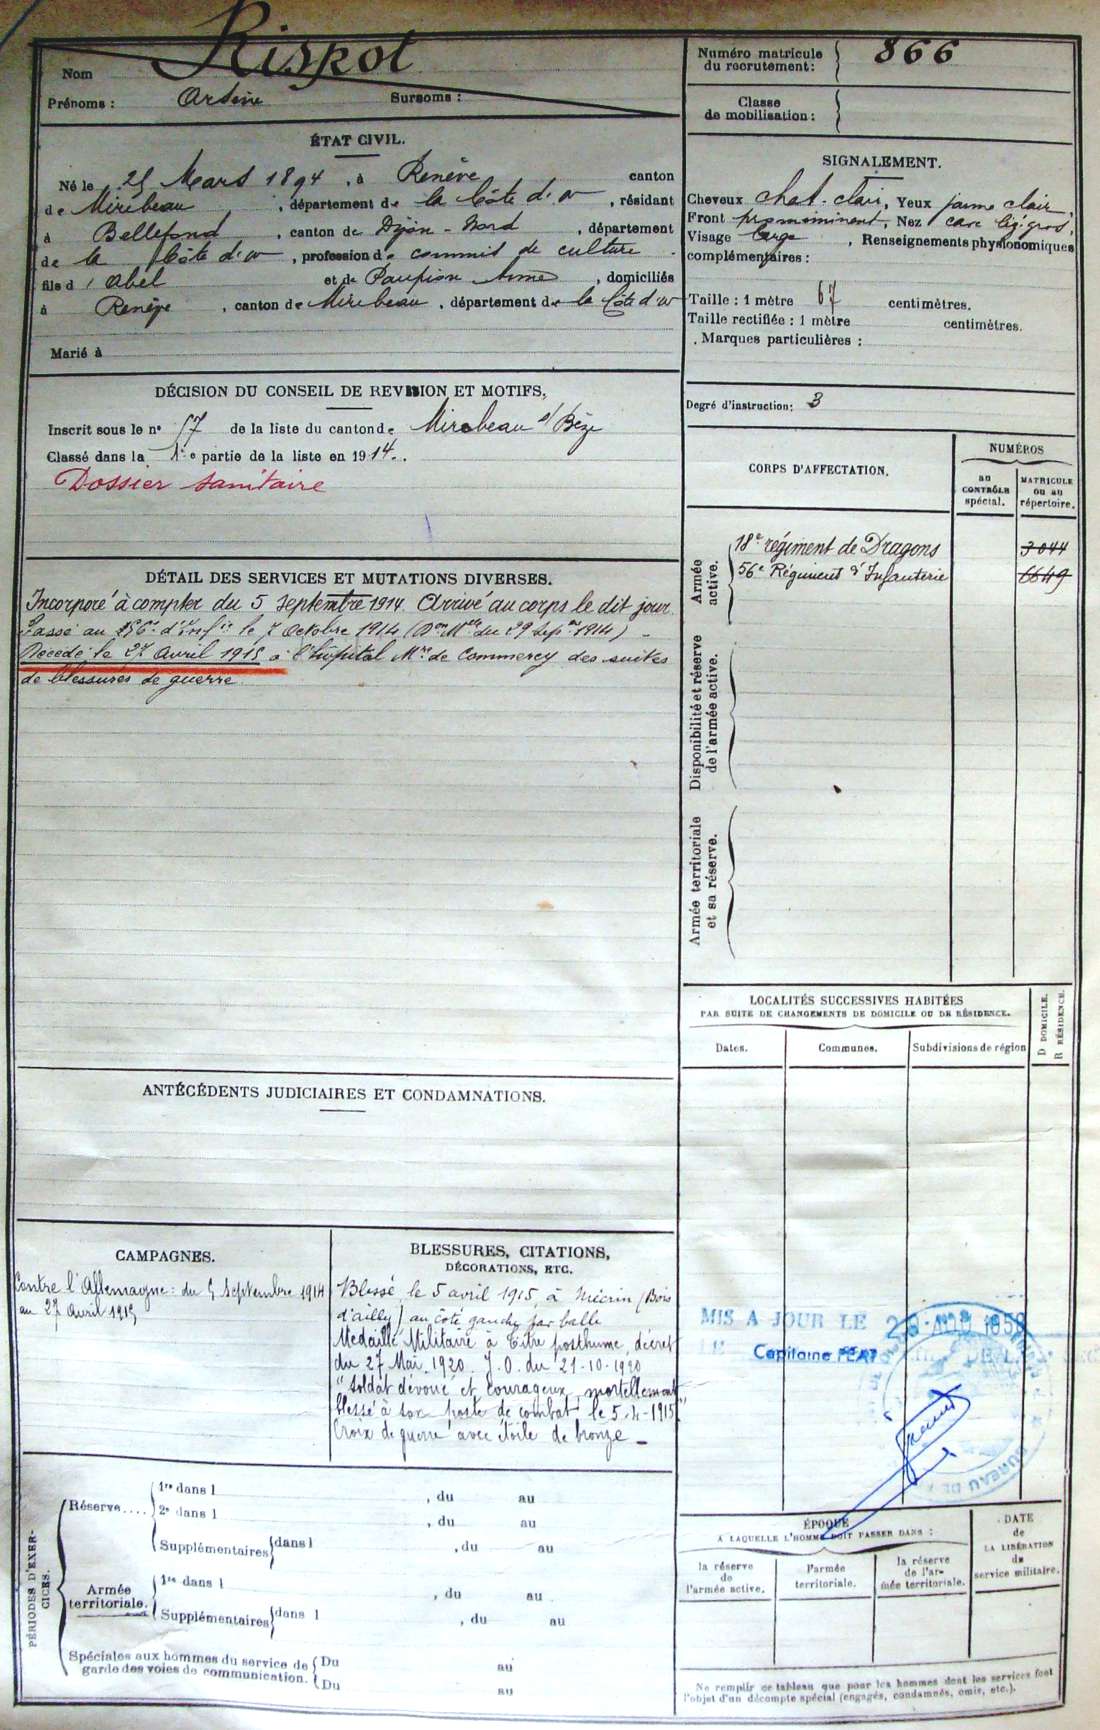 Nom Rispot
Prénoms : Arsène Surnoms :
Numéro matricule du recrutement : 866
Classe de mobilisation :
ÉTAT CIVIL.
Né le 25 Mars 1894, à Renève canton
de Mirebeau, département de la Côte d'or, résidant
à Bellefond, canton de Dijon-Nord, département
de la Côte d'or, profession de commis de culture
fils d'Abel et de Paupion Anne, domiciliés
à Renève, canton de Mirebeau, département de la Côte d'or
Marié à
SIGNALEMENT.
Cheveux chat-clair, Yeux jaune clair,
Front prominent, Nez cave lég. gros,
Visage large, Renseignements physionomiques
complémentaires :
Taille : 1 mètre 67 centimètres.
Taille rectifiée : 1 mètre centimètres.
Marques particulières :
DÉCISION DU CONSEIL DE REVISION ET MOTIFS,
Inscrit sous le n° 57 de la liste du canton de Mirebeau s/ Bèze
Classé dans la 1re partie de la liste en 1914.
Dossier sanitaire
Degré d'instruction : 3
CORPS D'AFFECTATION.
NUMÉROS
au CONTRÔLE spécial.
MATRICULE ou au répertoire.
Armée active.
18e régiment de Dragons 3044
56e Régiment d'Infanterie 6649
Disponibilité et réserve de l'armée active.
Armée territoriale et sa réserve.
DÉTAIL DES SERVICES ET MUTATIONS DIVERSES.
Incorporé à compter du 5 septembre 1914. Arrivé au corps le dit jour.
Passé au 56e d'Infie le 7 octobre 1914 (Don Mlle du 29 Sepbre 1914)
Décédé le 27 Avril 1915 à l'hôpital Mre de Commercy des suites
de blessures de guerre
LOCALITÉS SUCCESSIVES HABITÉES
PAR SUITE DE CHANGEMENTS DE DOMICILE OU DE RÉSIDENCE.
Dates. Communes. Subdivisions de région
D DOMICILE.
R RÉSIDENCE.
ANTÉCÉDENTS JUDICIAIRES ET CONDAMNATIONS.
CAMPAGNES.
Contre l'Allemagne : du 5 Septembre 1914
au 27 Avril 1915
BLESSURES, CITATIONS,
DÉCORATIONS, ETC.
Blessé le 5 avril 1915, à Mécrin (Bois
d'ailly) au côté gauche par balle
Médaille Militaire à titre posthume, décret
du 27 Mai 1920. J.O. du 21-10-1920
"Soldat dévoué et courageux, mortellement
blessé à son poste de combat le 5-4-1915"
Croix de guerre avec étoile de bronze
MIS A JOUR LE
LE
Capitaine
BUREAU DE
PÉRIODES D'EXERCICES.
Réserve....
1re dans l , du au
2e dans l , du au
Supplémentaires dans l , du au
Armée territoriale.
1re dans l , du au
Supplémentaires dans l , du au
Spéciales aux hommes du service de garde des voies de communication.
Du au
Du au
ÉPOQUE
A LAQUELLE L'HOMME DOIT PASSER DANS :
la réserve de l'armée active.
l'armée territoriale.
la réserve de l'armée territoriale.
DATE de LA LIBÉRATION du service militaire.
Ne remplir ce tableau que pour les hommes dont les services font
l'objet d'un décompte spécial (engagés, condamnés, omis, etc.).